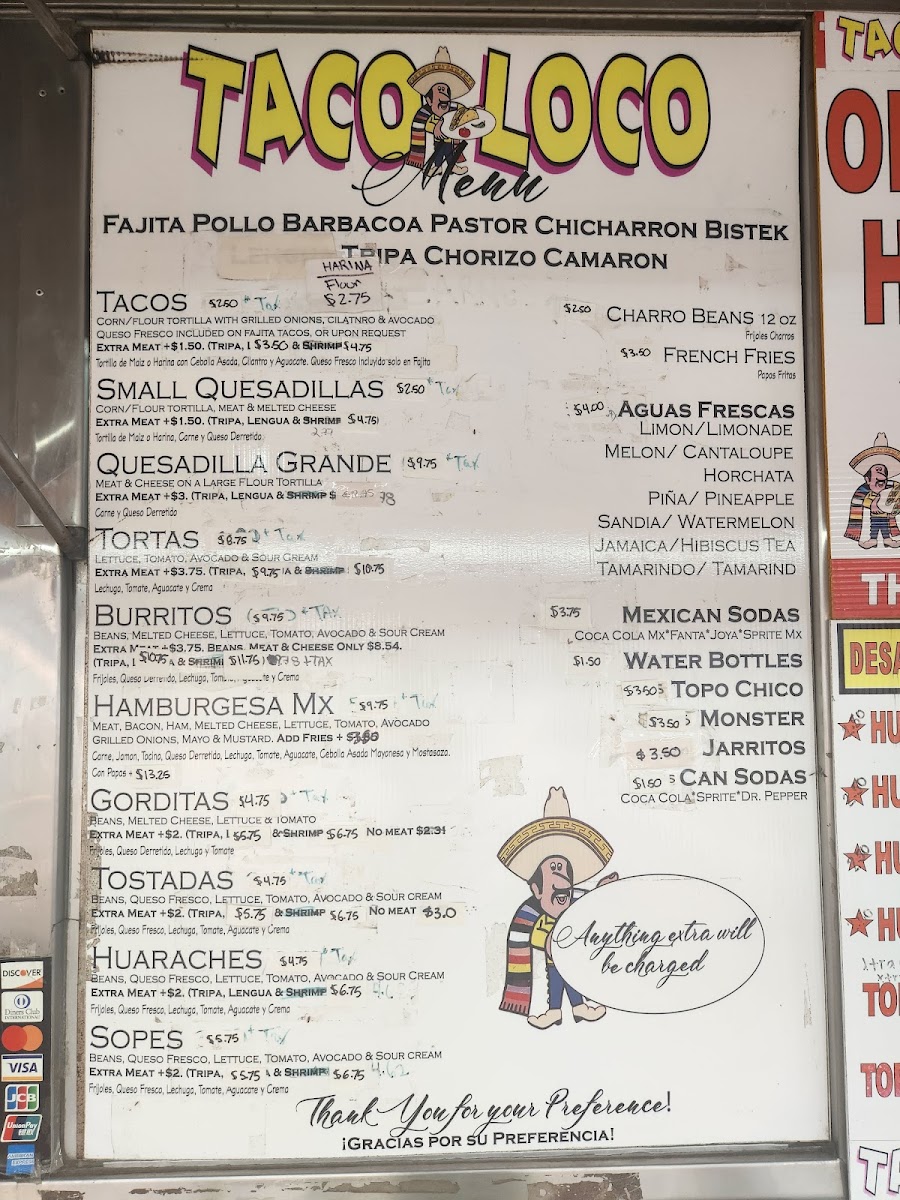 TACO LOCO
Menu
FAJITA POLLO BARBACOA PASTOR CHICHARRON BISTEK
TRIPA CHORIZO CAMARON
HARINA
Flour
$2.75
TACOS $2.50 + Tax
CORN/FLOUR TORTILLA WITH GRILLED ONIONS, CILATNRO & AVOCADO
QUESO FRESCO INCLUDED ON FAJITA TACOS, OR UPON REQUEST
EXTRA MEAT +$1.50. (TRIPA, $3.50 & SHRIMP $4.75
Tortilla de Maiz o Harina con Cebolla Asada, Cilantro y Aguacate. Queso Fresco Incluyido solo en Fajita
SMALL QUESADILLAS $2.50 + Tax
CORN/FLOUR TORTILLA, MEAT & MELTED CHEESE
EXTRA MEAT +$1.50. (TRIPA, LENGUA & SHRIMP $4.75)
Tortilla de Maiz o Harina, Carne y Queso Derretido
QUESADILLA GRANDE $9.75 + Tax
MEAT & CHEESE ON A LARGE FLOUR TORTILLA
EXTRA MEAT +$3. (TRIPA, LENGUA & SHRIMP $
Carne y Queso Derretido
TORTAS $8.75 + Tax
LETTUCE, TOMATO, AVOCADO & SOUR CREAM
EXTRA MEAT +$3.75. (TRIPA, $9.75 & SHRIMP $10.75
Lechuga, Tomate, Aguacate y Crema
BURRITOS $9.75 + TAX
BEANS, MELTED CHEESE, LETTUCE, TOMATO, AVOCADO & SOUR CREAM
EXTRA +$3.75. BEANS, MEAT & CHEESE ONLY $8.54.
(TRIPA, $10.75 & SHRIMP $11.75 +TAX
Frijoles, Queso Derretido, Lechuga, y Crema
HAMBURGESA MX $9.75 + Tax
MEAT, BACON, HAM, MELTED CHEESE, LETTUCE, TOMATO, AVOCADO
GRILLED ONIONS, MAYO & MUSTARD. ADD FRIES +
Carne, Jamon, Tocino, Queso Derretido, Lechuga, Tomate, Aguacate, Cebolla Asada Mayonesa y Mostasaza.
Con Papas + $13.25
GORDITAS $4.75 + Tax
BEANS, MELTED CHEESE, LETTUCE & TOMATO
EXTRA MEAT +$2. (TRIPA, $5.75 & SHRIMP $6.75 NO MEAT $2.31
Frijoles, Queso Derretido, Lechuga y Tomate
TOSTADAS $4.75 + Tax
BEANS, QUESO FRESCO, LETTUCE, TOMATO, AVOCADO & SOUR CREAM
EXTRA MEAT +$2. (TRIPA, $5.75 & SHRIMP $6.75 NO MEAT $3.0
Frijoles, Queso Fresco, Lechuga, Tomate, Aguacate y Crema
HUARACHES $4.75 + Tax
BEANS, QUESO FRESCO, LETTUCE, TOMATO, AVOCADO & SOUR CREAM
EXTRA MEAT +$2. (TRIPA, LENGUA & SHRIMP $6.75
Frijoles, Queso Fresco, Lechuga, Tomate, Aguacate y Crema
SOPES $5.75 + Tax
BEANS, QUESO FRESCO, LETTUCE, TOMATO, AVOCADO & SOUR CREAM
EXTRA MEAT +$2. (TRIPA, $5.75 & SHRIMP $6.75 4.62
Frijoles, Queso Fresco, Lechuga, Tomate, Aguacate y Crema
$2.50 CHARRO BEANS 12 OZ
Frijoles Charros
$3.50 FRENCH FRIES
Papas Fritas
$4.00 AGUAS FRESCAS
LIMON/LIMONADE
MELON/ CANTALOUPE
HORCHATA
PIÑA/ PINEAPPLE
SANDIA/ WATERMELON
JAMAICA/HIBISCUS TEA
TAMARINDO/ TAMARIND
$3.75 MEXICAN SODAS
COCA COLA MX*FANTA*JOYA*SPRITE MX
$1.50 WATER BOTTLES
$3.50 TOPO CHICO
$3.50 MONSTER
$3.50 JARRITOS
$1.50 CAN SODAS
COCA COLA*SPRITE*DR. PEPPER
Anything extra will
be charged
Thank You for your Preference!
¡GRACIAS POR SU PREFERENCIA!
DISCOVER
Diners Club
INTERNATIONAL
VISA
JCB
UnionPay
AMERICAN
EXPRESS
TAC
H
TH
DESA
HU
HU
HU
HU
TOR
TOR
TA